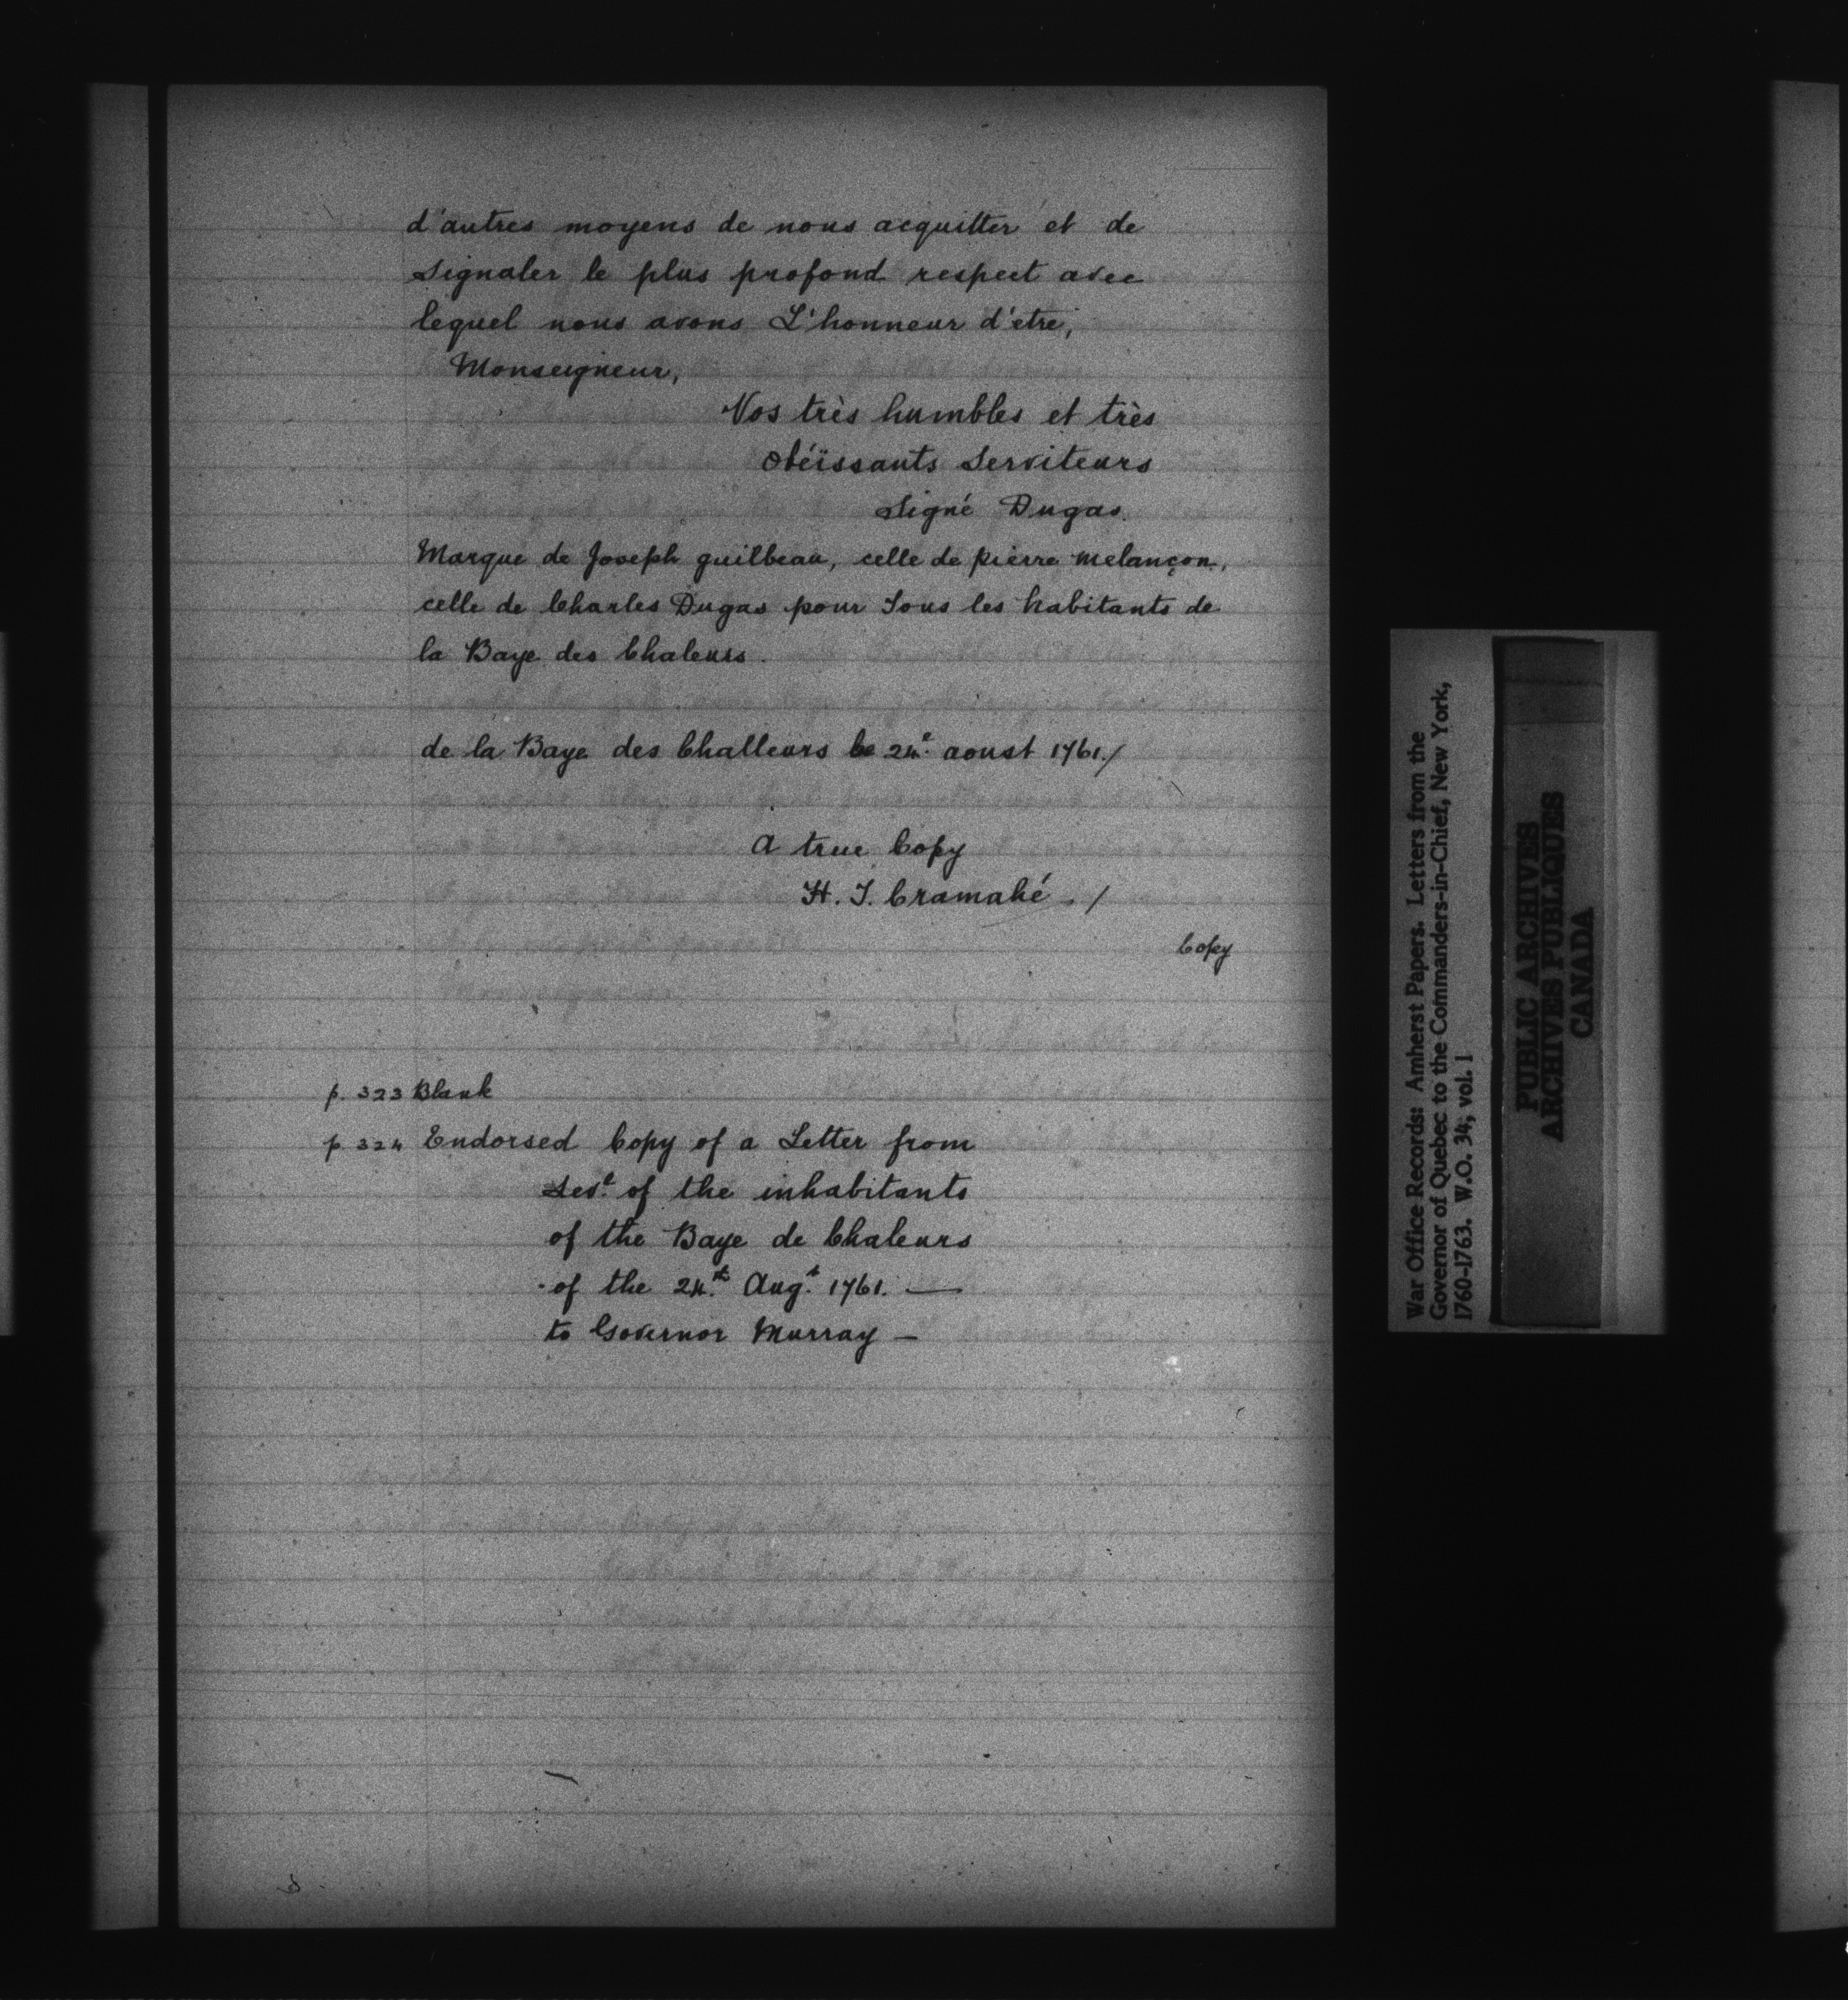 d'autres moyens de nous acquitter et de
Signaler le plus profond respect avec
lequel nous avons L'honneur d'etre,
Monseigneur,
Vos très humbles et très
obéïssants Serviteurs
Signé Dugas.
Marque de Joseph guilbeau, celle de pierre melançon,
celle de Charles Dugas pour Tous les habitants de
la Baye des Chaleurs.
de la Baye des Challeurs le 24e. aoust 1761./
A true Copy
H. T. Cramahé ./
Copy
p. 323 Blank
p. 324 Endorsed Copy of a Letter from
Sevl. of the inhabitants
of the Baye de Chaleurs
of the 24th. Augt. 1761. —
to Governor Murray —
War Office Records: Amherst Papers. Letters from the
Governor of Quebec to the Commanders-in-Chief, New York,
1760-1763. W.O. 34; vol. 1
PUBLIC ARCHIVES
ARCHIVES PUBLIQUES
CANADA